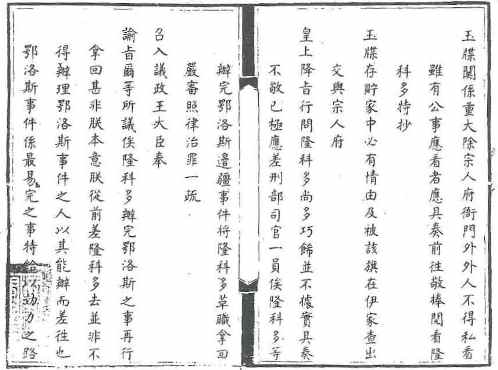 玉牒關係重大除宗人府衙門外外人不得私看
雖有公事應看者應具奏前往敬捧閱看隆
科多特抄
玉牒存貯家中必有情由及被該旗在伊家查出
交與宗人府
皇上降旨行問隆科多尚多巧飾並不據實具奏
不敬已極應差刑部司官一員俟隆科多等
辦完鄂洛斯邊疆事件將隆科多革職拿回
嚴審照律治罪一疏
召入議政王大臣奉
諭旨爾等所議俟隆科多辦完鄂洛斯之事再行
拿回甚非朕本意朕從前差隆科多去並非不
得辦理鄂洛斯事件之人以其能辦而差往也
鄂洛斯事件係最易完之事特給以効力之路